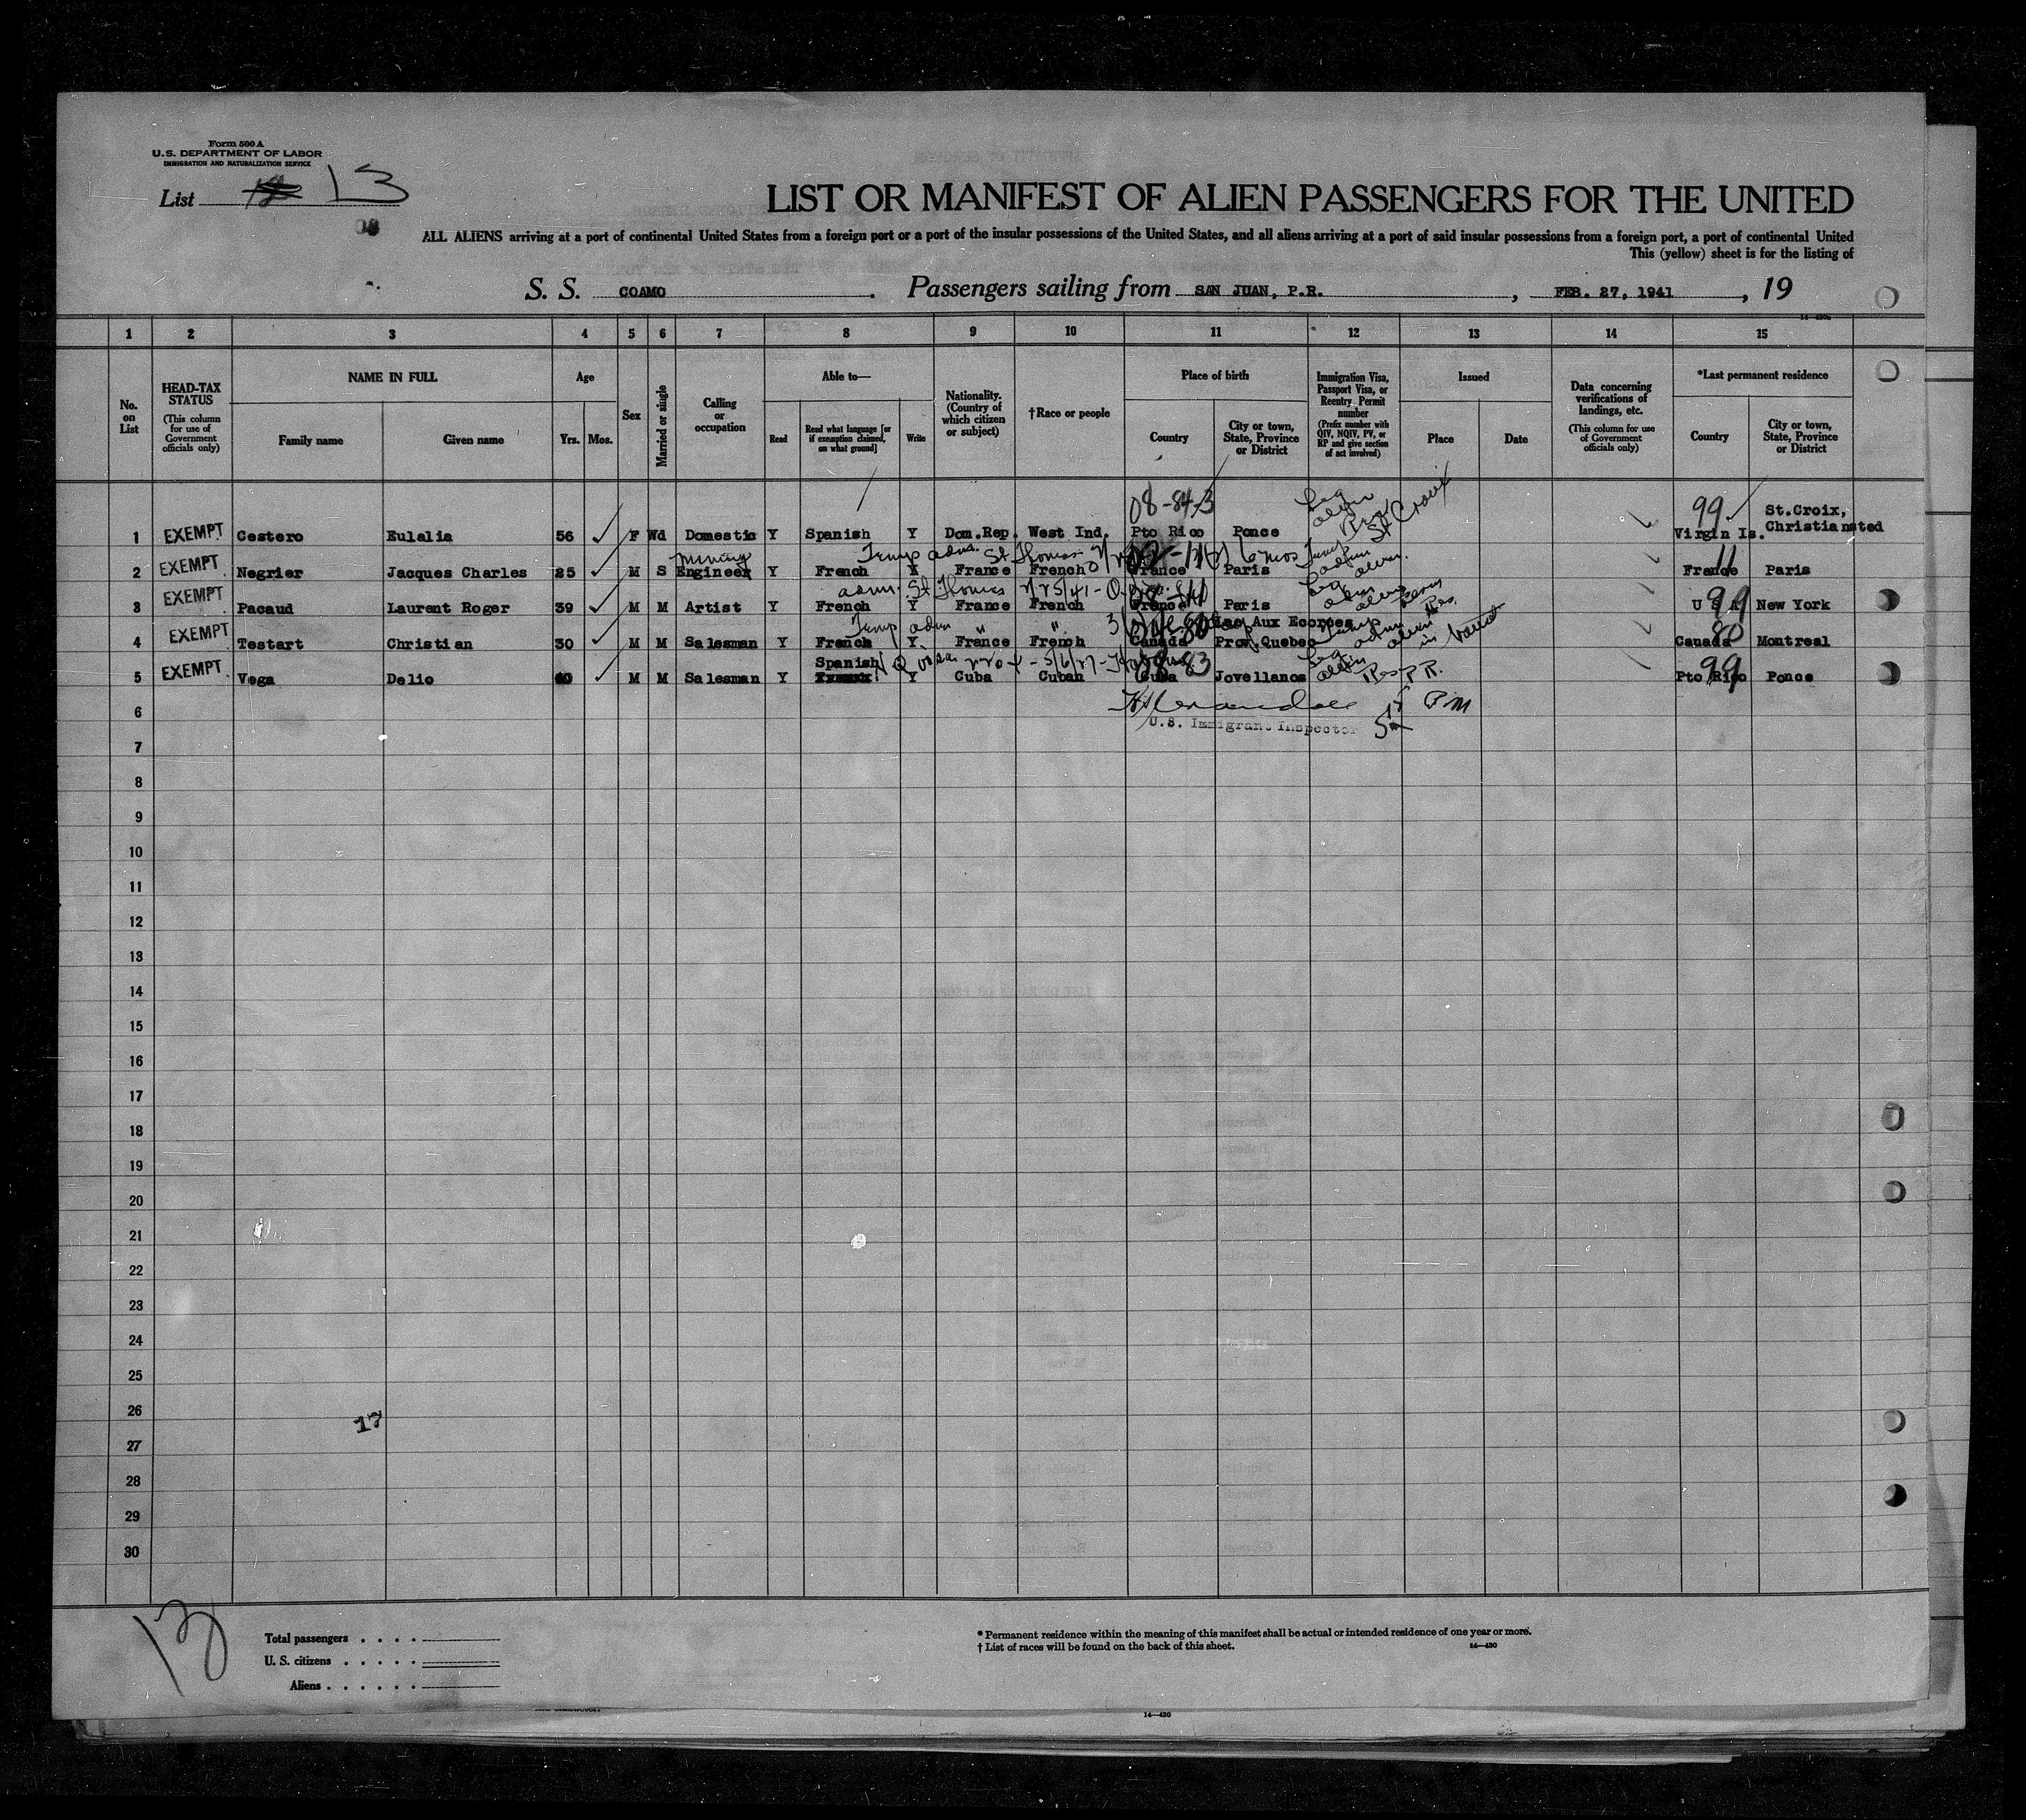 Form 500 A
U.S. DEPARTMENT OF LABOR
IMMIGRATION AND NATURALIZATION SERVICE
List 13
LIST OR MANIFEST OF ALIEN PASSENGERS FOR THE UNITED
ALL ALIENS arriving at a port of continental United States from a foreign port or a port of the insular possessions of the United States, and all aliens arriving at a port of said insular possessions from a foreign port, a port of continental United
This (yellow) sheet is for the listing of
S. S. COAMO. Passengers sailing from SAN JUAN, P.R., FEB. 27, 1941, 19
1 2 3 4 5 6 7 8 9 10 11 12 13 14 15
No. on List
HEAD-TAX STATUS (This column for use of Government officials only)
NAME IN FULL
Family name Given name
Age
Yrs. Mos.
Sex
Married or single
Calling or occupation
Able to—
Read
Read what language [or if exemption claimed, on what ground]
Write
Nationality. (Country of which citizen or subject)
†Race or people
Place of birth
Country
City or town, State, Province or District
Immigration Visa, Passport Visa, or Reentry Permit number (Prefix number with QIV, NQIV, PV, or RP and give section of act involved)
Issued
Place Date
Data concerning verifications of landings, etc. (This column for use of Government officials only)
*Last permanent residence
Country
City or town, State, Province or District
1 EXEMPT Cestero Eulalia 56 F Wd Domestic Y Spanish Y Dom.Rep. West Ind. Pto Rico Ponce 99 Virgin Is. St.Croix, Christiansted
2 EXEMPT Negrier Jacques Charles 25 M S mining Engineer Y French Y France French France Paris 11 France Paris
3 EXEMPT Pacaud Laurent Roger 39 M M Artist Y French Y France French France Paris 99 U S A New York
4 EXEMPT Testart Christian 30 M M Salesman Y French Y France French Canada Lac Aux Ecorces Prov.Quebec 80 Canada Montreal
5 EXEMPT Vega Delio 40 M M Salesman Y Spanish Y Cuba Cuban Cuba Jovellanos 99 Pto Rico Ponce
6
U.S. Immigrant Inspector
7
8
9
10
11
12
13
14
15
16
17
18
19
20
21
22
23
24
25
26
17
27
28
29
30
Total passengers
U. S. citizens
Aliens
* Permanent residence within the meaning of this manifest shall be actual or intended residence of one year or more.
† List of races will be found on the back of this sheet.
14—430
14—430